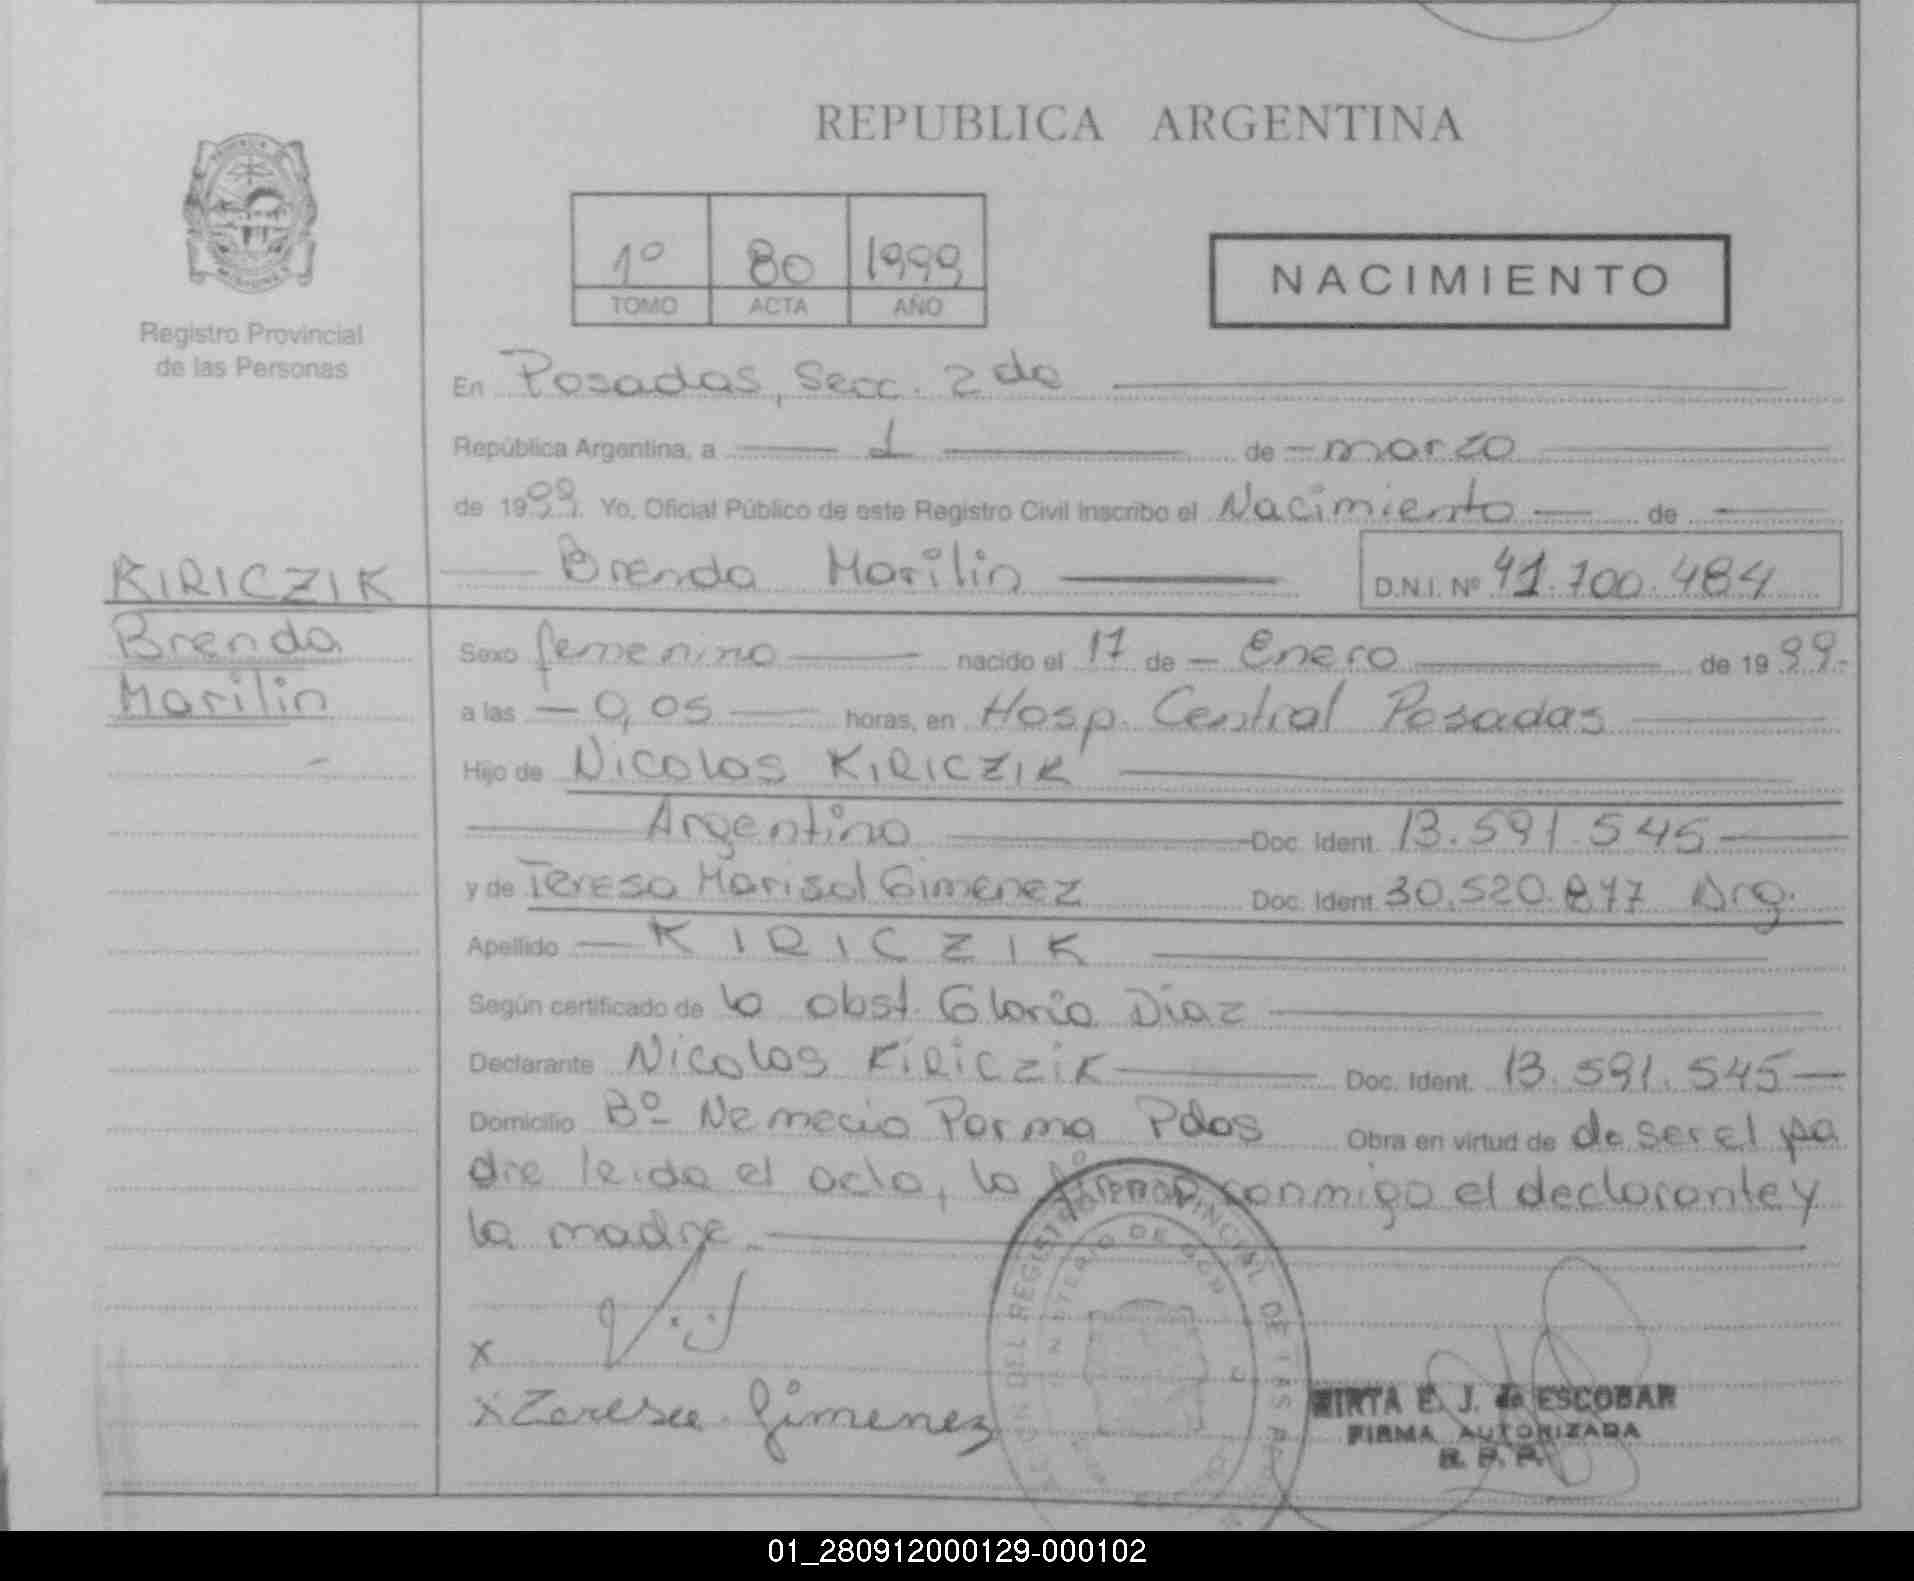 REPUBLICA ARGENTINA
1º 80 1999
TOMO ACTA AÑO
NACIMIENTO
Registro Provincial
de las Personas
En Posadas, Secc. 2da
República Argentina, a 1 de marzo
de 1999. Yo, Oficial Público de este Registro Civil inscribo el Nacimiento de
Brenda Marilin D.N.I. Nº 41.700.484
KIRICZIK
Brenda
Marilin
Sexo femenino nacido el 17 de Enero de 1999.
a las 0,05 horas, en Hosp. Central Posadas
Hijo de Nicolas KIRICZIK
Argentino Doc. Ident. 13.591.545
y de Teresa Marisol Gimenez Doc. Ident. 30.520.877 Arg.
Apellido KIRICZIK
Según certificado de la obst. Gloria Diaz
Declarante Nicolas KiRiCziK Doc. Ident. 13.591.545
Domicilio Bº Nemecio Parma Pdas Obra en virtud de de ser el pa
dre leida el acta, la firman conmigo el declarante y
la madre.
x
x Teresa Gimenez
MIRTA E. J. de ESCOBAR
FIRMA AUTORIZADA
R. P. P.
01_280912000129-000102